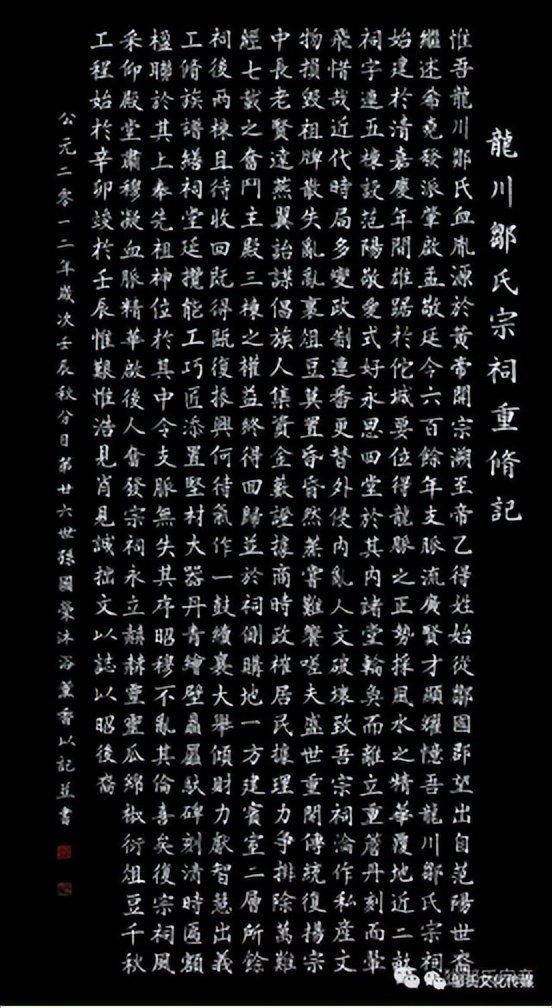 龍川鄒氏宗祠重脩記
惟吾龍川鄒氏血胤源於黃帝開宗溯至帝乙得姓始從鄒國郡望出自范陽世裔
繼述希克發派肇啟孟敬廷今六百餘年支脈流廣賢才顯耀憶吾龍川鄒氏宗祠
始建於清嘉慶年間雄踞於佗城要位得龍脈之正勢採風水之精華覆地近二畝
祠宇連五棟設范陽敬愛式好永思四堂於其內諸堂輪奐而離立重簷丹刻而翬
飛惜哉近代時局多變政制連番更替外侵內亂人文破壞致吾宗祠淪作私產文
物損毀祖牌散失亂亂裏俎豆莫置昏昏然蒸嘗難饗嗟夫盛世重開傳統復揚宗
中長老賢達燕翼詒謀倡族人集資金藪證據商時政榷居民據理力爭排除萬難
經七載之奮鬥主殿三棟之權益終得回歸並於祠側購地一方建賓室二層所餘
祠後兩棟且待收回既得甌復振興何待氣作一鼓續襄大舉傾財力獻智慧出義
工脩族譜繕祠堂廷攬能工巧匠添置堅材大器丹青繪壁贔屭馱碑刻清時匾額
楹聯於其上奉先祖神位於其中令支脈無失其序昭穆不亂其倫喜矣復宗祠風
采仰殿堂肅穆凝血脈精華啟後人奮發宗祠永立赫赫靈聖瓜綿椒衍俎豆千秋
工程始於辛卯竣於壬辰惟艱惟浩見肖見誠拙文以誌以昭後裔
公元二零一二年歲次壬辰秋分日第廿六世孫國榮沐浴薰香以記並書
鄒氏文化傳媒